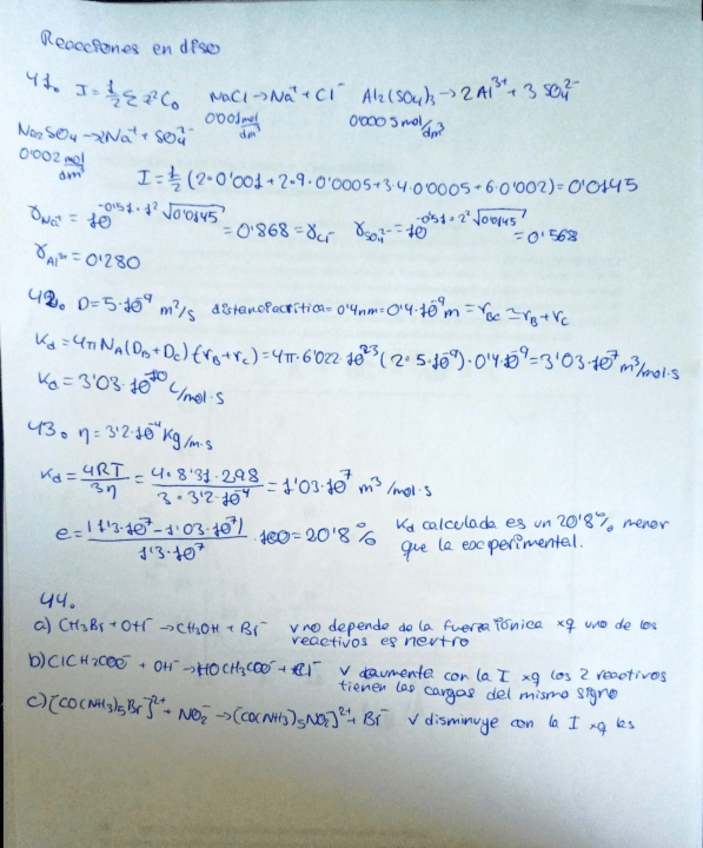 Reacciones en diso
41. I = ½ Σ z² C₀ NaCl → Na⁺ + Cl⁻ Al₂(SO₄)₃ → 2 Al³⁺ + 3 SO₄²⁻
0'001 mol/dm³ 0'0005 mol/dm³
Na₂SO₄ → 2Na⁺ + SO₄²⁻
0'002 mol/dm³
I = ½ (2·0'001 + 2·9·0'0005 + 3·4·0'0005 + 6·0'002) = 0'0145
γNa⁺ = 10^(-0'51·1²√0'0145) = 0'868 = γCl⁻ γSO₄²⁻ = 10^(-0'51·2²√0'0145) = 0'568
γAl³⁺ = 0'280
42. D = 5·10⁻⁹ m²/s distancia crítica = 0'4nm = 0'4·10⁻⁹ m = rBC ≃ rB + rC
Kd = 4π NA (DB + DC) (rB + rC) = 4π·6'022·10²³ (2·5·10⁻⁹)·0'4·10⁻⁹ = 3'03·10⁷ m³/mol·s
Kd = 3'03·10¹⁰ L/mol·s
43. η = 3'2·10⁻⁴ Kg/m·s
Kd = 4RT/3η = 4·8'31·298/3·3'2·10⁻⁴ = 1'03·10⁷ m³/mol·s
e = |1'3·10⁷ - 1'03·10⁷|/1'3·10⁷ · 100 = 20'8 % Kd calculada es un 20'8% menor
que la experimental.
44.
a) CH₃Br + OH⁻ → CH₃OH + Br⁻ v no depende de la fuerza iónica xq uno de los
reactivos es neutro
b) ClCH₂COO⁻ + OH⁻ → HOCH₂COO⁻ + Cl⁻ v aumenta con la I xq los 2 reactivos
tienen las cargas del mismo signo
c) [CO(NH₃)₅Br]²⁺ + NO₂⁻ → [CO(NH₃)₅NO₂]²⁺ + Br⁻ v disminuye con la I xq las